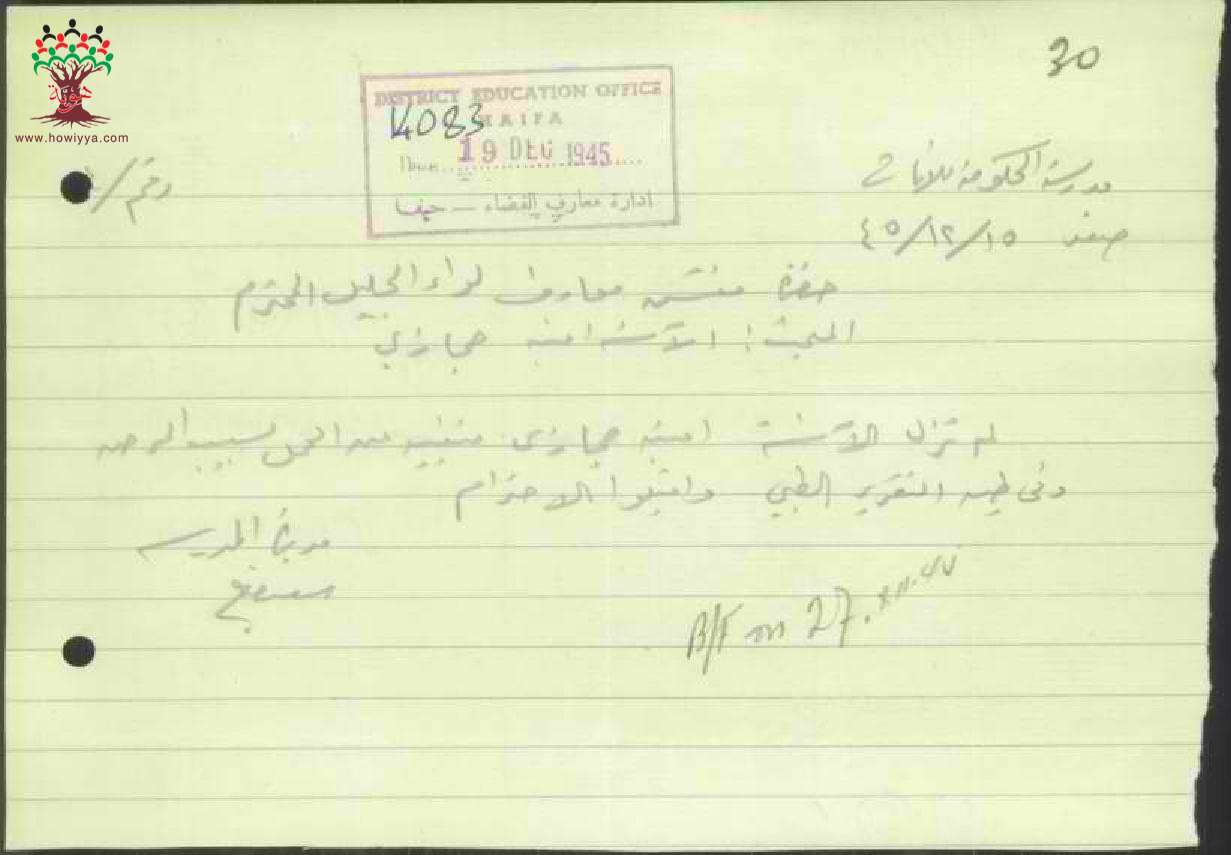 30
هوية
www.howiyya.com
DISTRICT EDUCATION OFFICE
HAIFA
4083
Date 19 DEC 1945
ادارة معارف القضاء — حيفا
مدرسة الحكومة للاناث
رقم /
صفد ١٥/١٢/٤٥
حضرة مفتش معارف لواء الجليل المحترم
المبحث: الآنسة امينه حجازي
لم تزل الآنسة امينه حجازي متغيبه عن العمل بسبب المرض
وفي طيه التقرير الطبي واقبلوا الاحترام
مديرة المدرسه
B/F on 27.